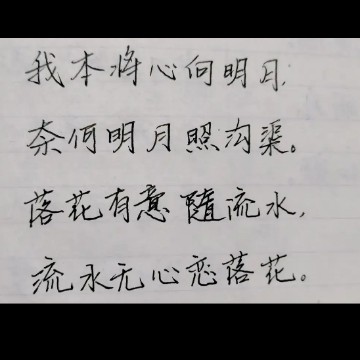 我本将心向明月，
奈何明月照沟渠。
落花有意随流水，
流水无心恋落花。